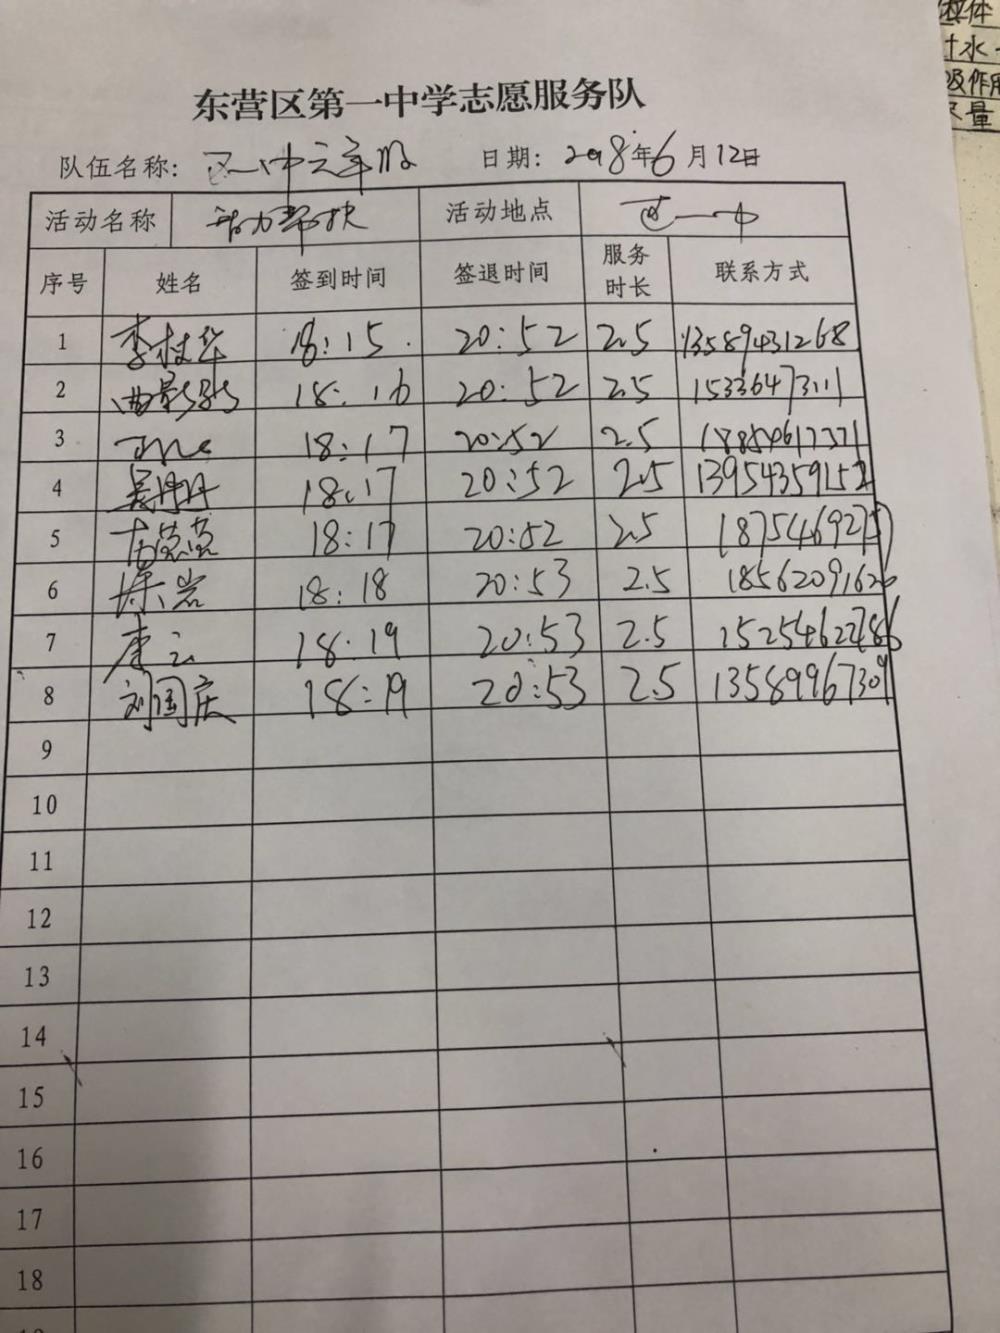 粒体
叶水
吸作用
尽量
东营区第一中学志愿服务队
队伍名称: 区一中 日期: 2018年6月12日
活动名称 帮扶 活动地点 区一中
序号 姓名 签到时间 签退时间 服务时长 联系方式
1 李桂华 18:15 20:52 2.5 13589431268
2 曲影影 18:16 20:52 2.5 15336473111
3 18:17 20:52 2.5 18854617371
4 吴丹丹 18:17 20:52 2.5 13954359152
5 18:17 20:52 2.5 1875469275
6 徐岩 18:18 20:53 2.5 18562091626
7 唐云 18:19 20:53 2.5 15254622486
8 刘国庆 18:19 20:53 2.5 13589967309
9
10
11
12
13
14
15
16
17
18